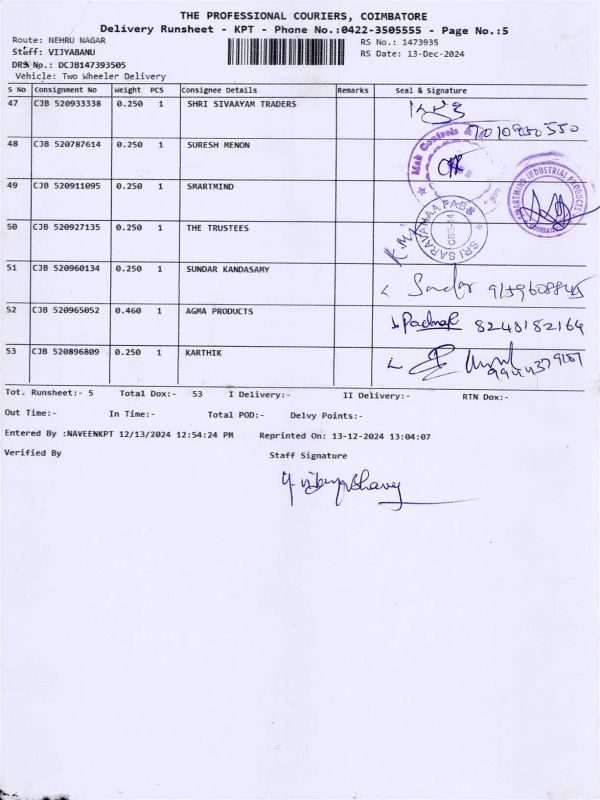 THE PROFESSIONAL COURIERS, COIMBATORE
Delivery Runsheet - KPT - Phone No.:0422-3505555 - Page No.:5
Route: NEHRU NAGAR
RS No.: 1473935
Staff: VIJYABANU
RS Date: 13-Dec-2024
DRS No.: DCJB147393505
Vehicle: Two Wheeler Delivery
S No Consignment No Weight PCS Consignee Details Remarks Seal & Signature
47 CJB 520933338 0.250 1 SHRI SIVAAYAM TRADERS
48 CJB 520787614 0.250 1 SURESH MENON
49 CJB 520911095 0.250 1 SMARTMIND
SMARTMIND INDUSTRIAL PRODUCTS
50 CJB 520927135 0.250 1 THE TRUSTEES
SRI SARAVANAA FABS
51 CJB 520960134 0.250 1 SUNDAR KANDASAMY
52 CJB 520965052 0.460 1 AGMA PRODUCTS
8248182164
53 CJB 520896809 0.250 1 KARTHIK
Tot. Runsheet:- 5 Total Dox:- 53 I Delivery:- II Delivery:- RTN Dox:-
Out Time:- In Time:- Total POD:- Delvy Points:-
Entered By :NAVEENKPT 12/13/2024 12:54:24 PM Reprinted On: 13-12-2024 13:04:07
Verified By Staff Signature